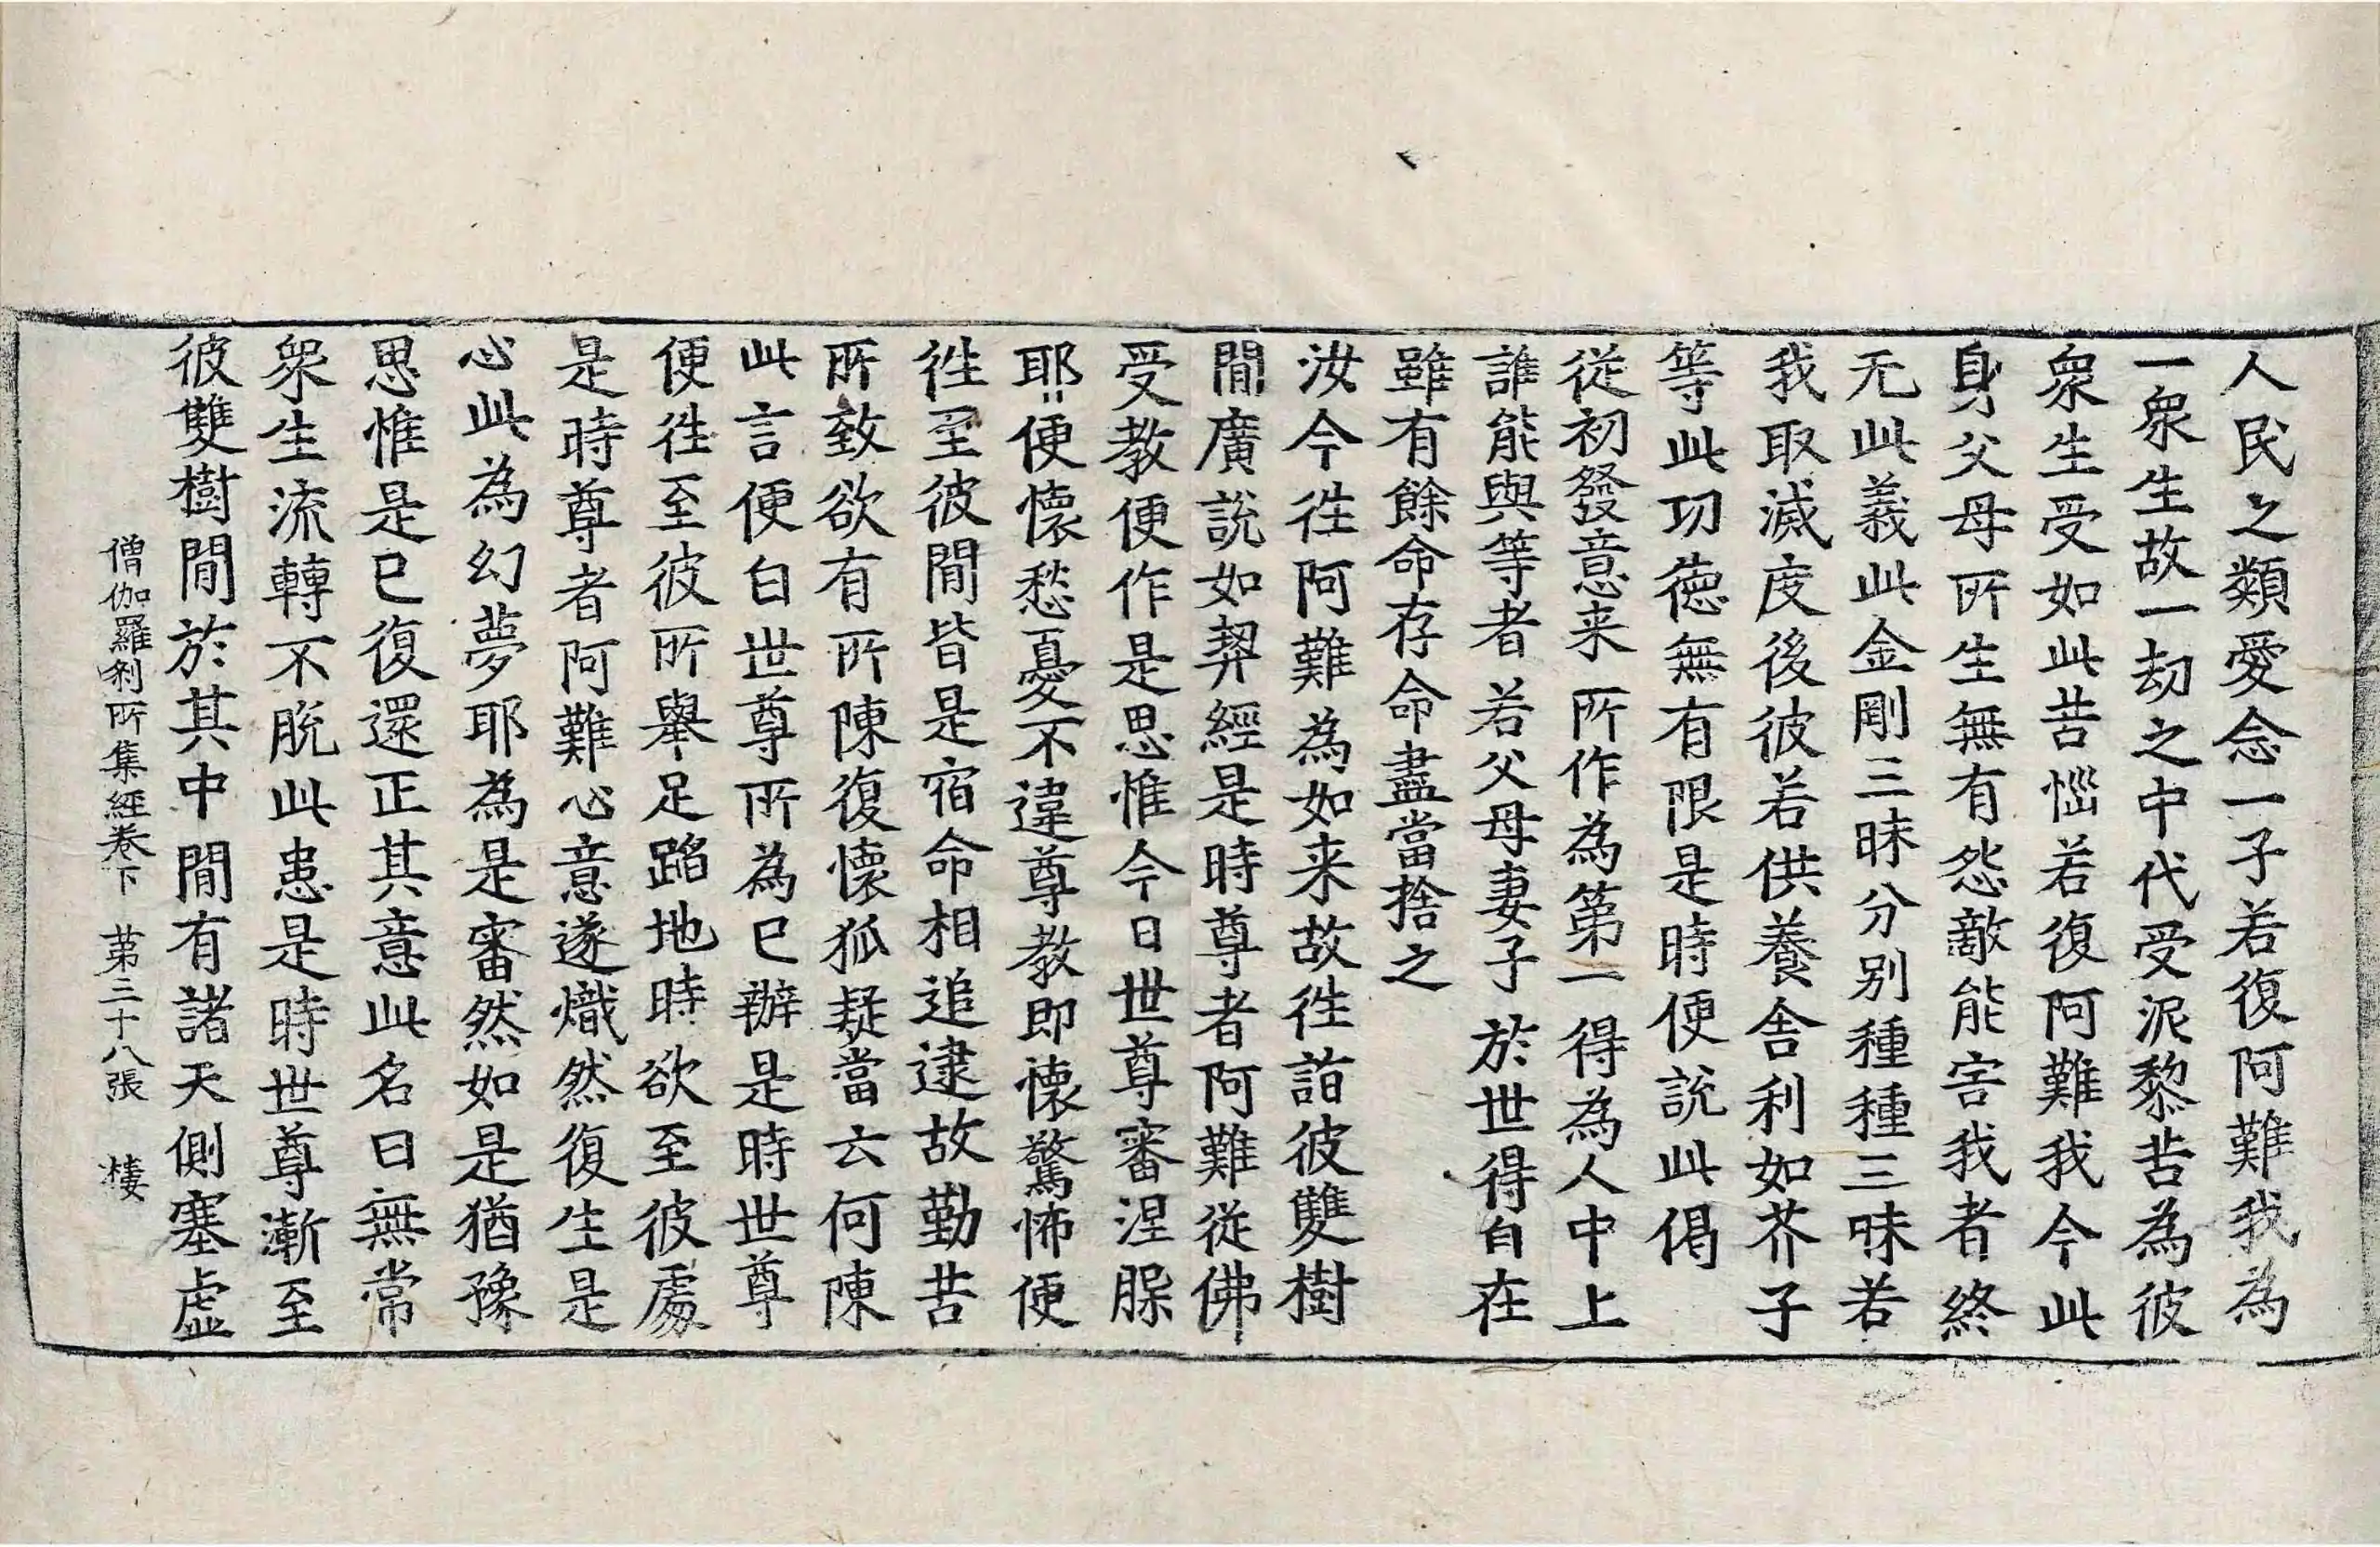 人民之類愛念一子若復阿難我為
一衆生故一劫之中代受泥黎苦為彼
衆生受如此苦惱若復阿難我今此
身父母所生無有怨敵能害我者終
无此義此金剛三昧分別種種三昧若
我取滅度後彼若供養舍利如芥子
等此功德無有限是時便說此偈
從初發意来 所作為第一 得為人中上
誰能與等者 若父母妻子 於世得自在
雖有餘命存 命盡當捨之
汝今往阿難為如来故往詣彼雙樹
間廣說如契經是時尊者阿難從佛
受教便作是思惟今日世尊審涅槃
耶便懷愁憂不違尊教即懷驚怖便
往至彼間皆是宿命相追逮故勤苦
所致欲有所陳復懷狐疑當云何陳
此言便白世尊所為已辦是時世尊
便往至彼所舉足蹈地時欲至彼處
是時尊者阿難心意遂熾然復生是
心此為幻夢耶為是審然如是猶豫
思惟是已復還正其意此名曰無常
衆生流轉不脫此患是時世尊漸至
彼雙樹間於其中間有諸天側塞虛
僧伽羅刹所集經卷下 第三十八張 樓